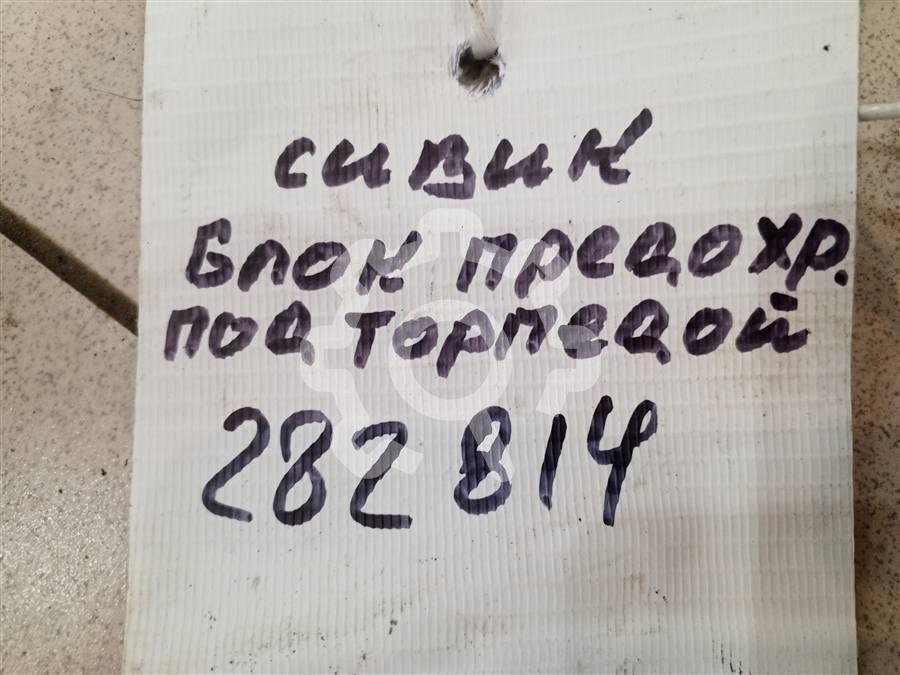 сивик
Блок предохр.
под торпедой
282814